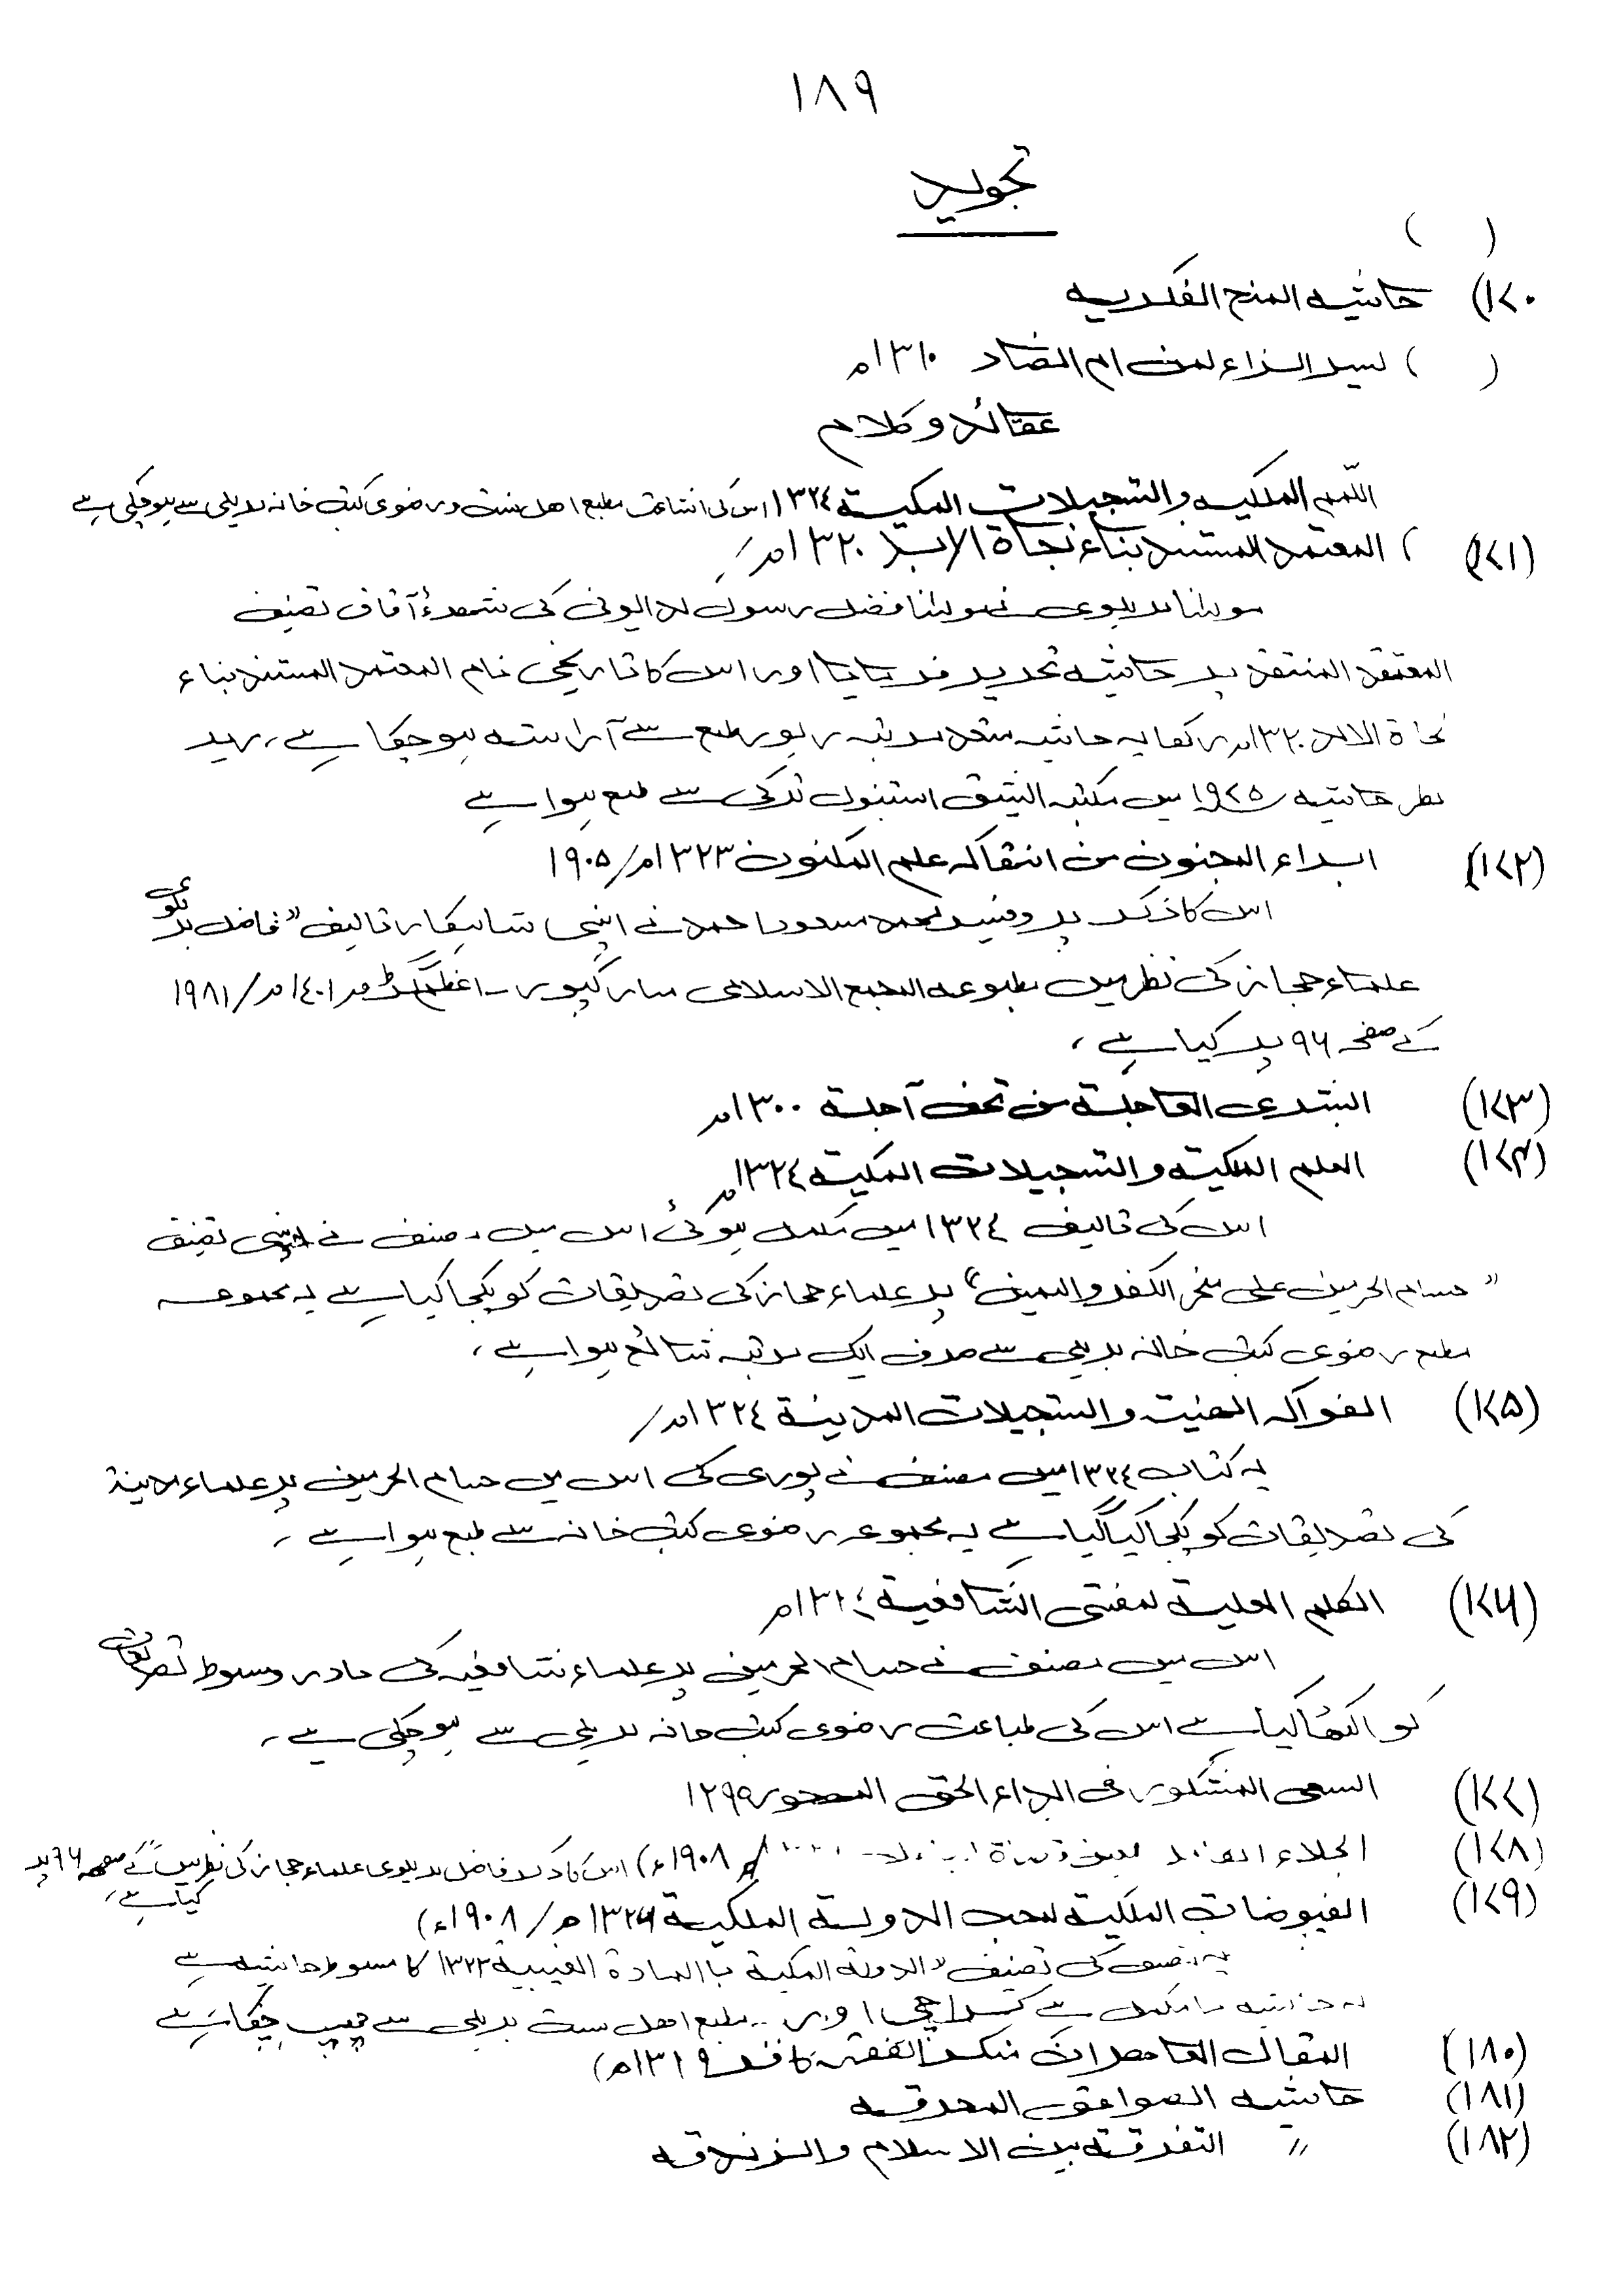 ١٨٩
تجوید
(     )
(١٧٠ حاشیہ المنح الفکریہ
(     ) یسر الزاد لمن ام الضاد ١٣١٠ھ
عقائد و کلام
المکلیہ والتسجیلات المکیة ١٣٢٤ اس کی اشاعت مطبع اهل سنت و رضوی کتب خانہ بریلی سے ہو چکی ہے
(١٧١) المعتمد المستند بناء نجاة الابد ١٣٢٠ھ/
مولانا بریلوی نے مولانا فضل رسول بدایونی کی شھرۂ آفاق تصنیف
المعتقد المنتقد پر حاشیہ تحریر فرمایا اور اس کا تاریخی نام المعتمد المستند بناء
نجاة الابد ١٣٢٠ھ رکھا یہ حاشیہ متعدد مرتبہ زیور طبع سے آراستہ ہو چکا ہے، زیر
نظر حاشیہ ١٩٧٥ میں مکتبہ ایشیق استنبول ترکی سے طبع ہوا ہے
(١٧٢) ابراء المجنون من انتقاکہ علم المکنون ١٣٢٣ھ/١٩٠٥
اس کا ذکر پروفیسر محمد مسعود احمد نے اپنی شاہکار تالیف "فاضل بریلوی
علماء حجاز کی نظر میں مطبوعہ المجمع الاسلامی مبارکپور۔ اعظم گڑھ ١٤٠١ھ/١٩٨١
کے صفحہ ٩٦ پر کیا ہے،
(١٧٣) البشری العاجلة من تحف آجلة ١٣٠٠ھ
(١٧٤) العلم الملکیة والتسجیلات المکیة ١٣٢٤ھ
اس کی تالیف ١٣٢٤ میں مکمل ہوئی اس میں مصنف نے اپنی تصنیف
"حسام الحرمین علی منحر الکفر والمین" پر علماء حجاز کی تصدیقات کو یکجا کیا ہے یہ مجموعہ
مطبع رضوی کتب خانہ بریلی سے صرف ایک مرتبہ شائع ہوا ہے،
(١٧٥) الفواکہ الھنیة والتسجیلات المدینة ١٣٢٤ھ/
یہ کتاب ١٣٢٤ میں مصنف نے پوری کی اس میں حسام الحرمین پر علماء مدینة
کی تصدیقات کو یکجا کیا گیا ہے یہ مجموعہ رضوی کتب خانہ سے طبع ہوا ہے،
(١٧٦) الکلم العلیة لمفتی الشافعیة ١٣٢٤ھ
اس میں مصنف نے حسام الحرمین پر علماء شافعیہ کی مبسوط تصدیقات
کو اکٹھا کیا ہے اس کی طباعت رضوی کتب خانہ بریلی سے ہو چکی ہے،
(١٧٧) السعی المشکور فی ابداء الحق المھجور ١٢٩٩
(١٧٨) الجلاء ١٩٠٨ء) اس کا ذکر فاضل بریلوی علماء حجاز کی نظر میں" کے صفحہ ٩٦ پر کیا ہے،
(١٧٩) الفیوضات الملکیة لمحب الدولة الملکیة ١٣٢٦ھ/١٩٠٨ء)
یہ مصنف کی تصنیف "الدولة المکیة با المادة الغیبیة ١٣٢٣ کا مبسوط حاشیہ ہے
یہ حاشیہ کراچی اور مطبع اھل سنت بریلی سے چھپ چکا ہے
(١٨٠) المقال الباھر ان منکر الفقہ کافر ١٣١٩ھ)
(١٨١) حاشیہ الصواعق المحرقہ
(١٨٢) " التفرقة بین الاسلام والزندقہ